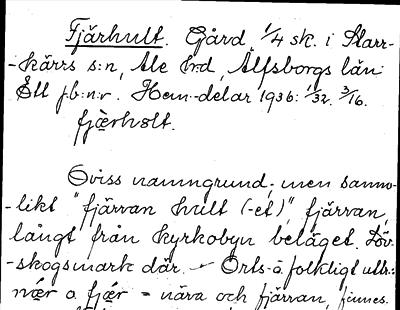 Fjärhult. Gård, 1/4 sk. i Starr-
-kärrs s:n, Ale h:d, Älfsborgs län.
Ett j-b:n:r. Hem:-delar 1936: 1/32. 3/16.
fjærhɷlt.
Oviss namngrund, men sanno-
-likt "fjärran hult (-et)", fjärran,
långt från kyrkobyn beläget. Löv-
-skogsmark där. – Orts- o. folkligt uttr.:
nǽr o. fjǽr = nära och fjärran, finnes.